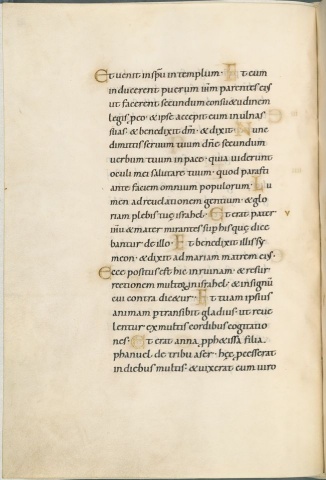 Et venit inspu in templum· Et cum
inducerent puerum ihm parentes eis
ut facerent secundum consuetudinem
legis, p eo· & ipse accepit eum in ulnas
suas· & benedixit dm· & dixit· Nunc
dimittis servum tuum dñe secundum
verbum tuum in pace· quia viderunt
oculi mei salutare tuum· quod parasti
ante faciem omnium populorum· Lu
men ad revelationem gentium· & glo
riam plebis tuę israhel· Et erat pater
iħu & mater mirantes sup his quę dice
bantur de illo· Et benedixit illis sy
meon· & dixit ad mariam matrem eis·
Ecce positus est hic in ruinam· & resur
rectionem multorum in israhel· & insignū
cui contra dicetur· Et tuam ipsius
animam ptransibit gladius· ut reve
lentur ex multis cordibus cogitatio
nes· Et erat anna pphetissa filia
phanuel de tribu aser· hęc pcesserat
in diebus multis· & vixerat cum viro